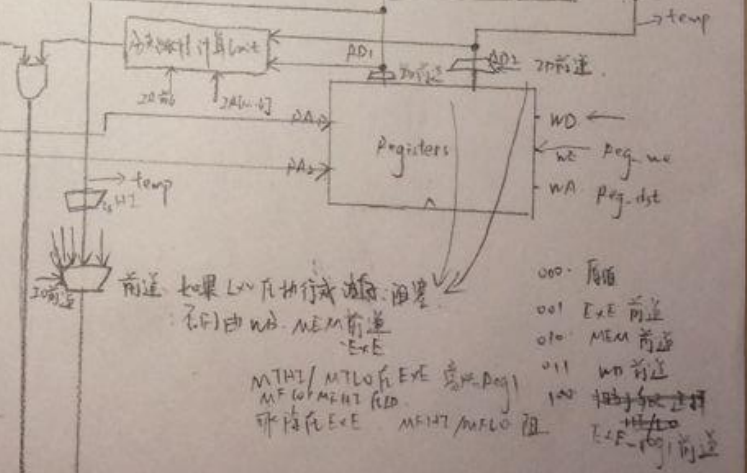 temp
计算Unit
RD1
RD2
ID前递
ID前递
RA1
Registers
WD
WE Reg_we
RA2
WA Reg_dst
temp
isHI
ID前递
前递 如果LW在执行或 阻塞
否则由WB. MEM前递
EXE
MTHI/MTLO在EXE
MFLO/MFHI在ID
乘除在EXE MFHI/MFLO 阻
000. 原值
001 EXE前递
010 MEM前递
011 WB前递
100
HI/LO
EXE_reg1前递